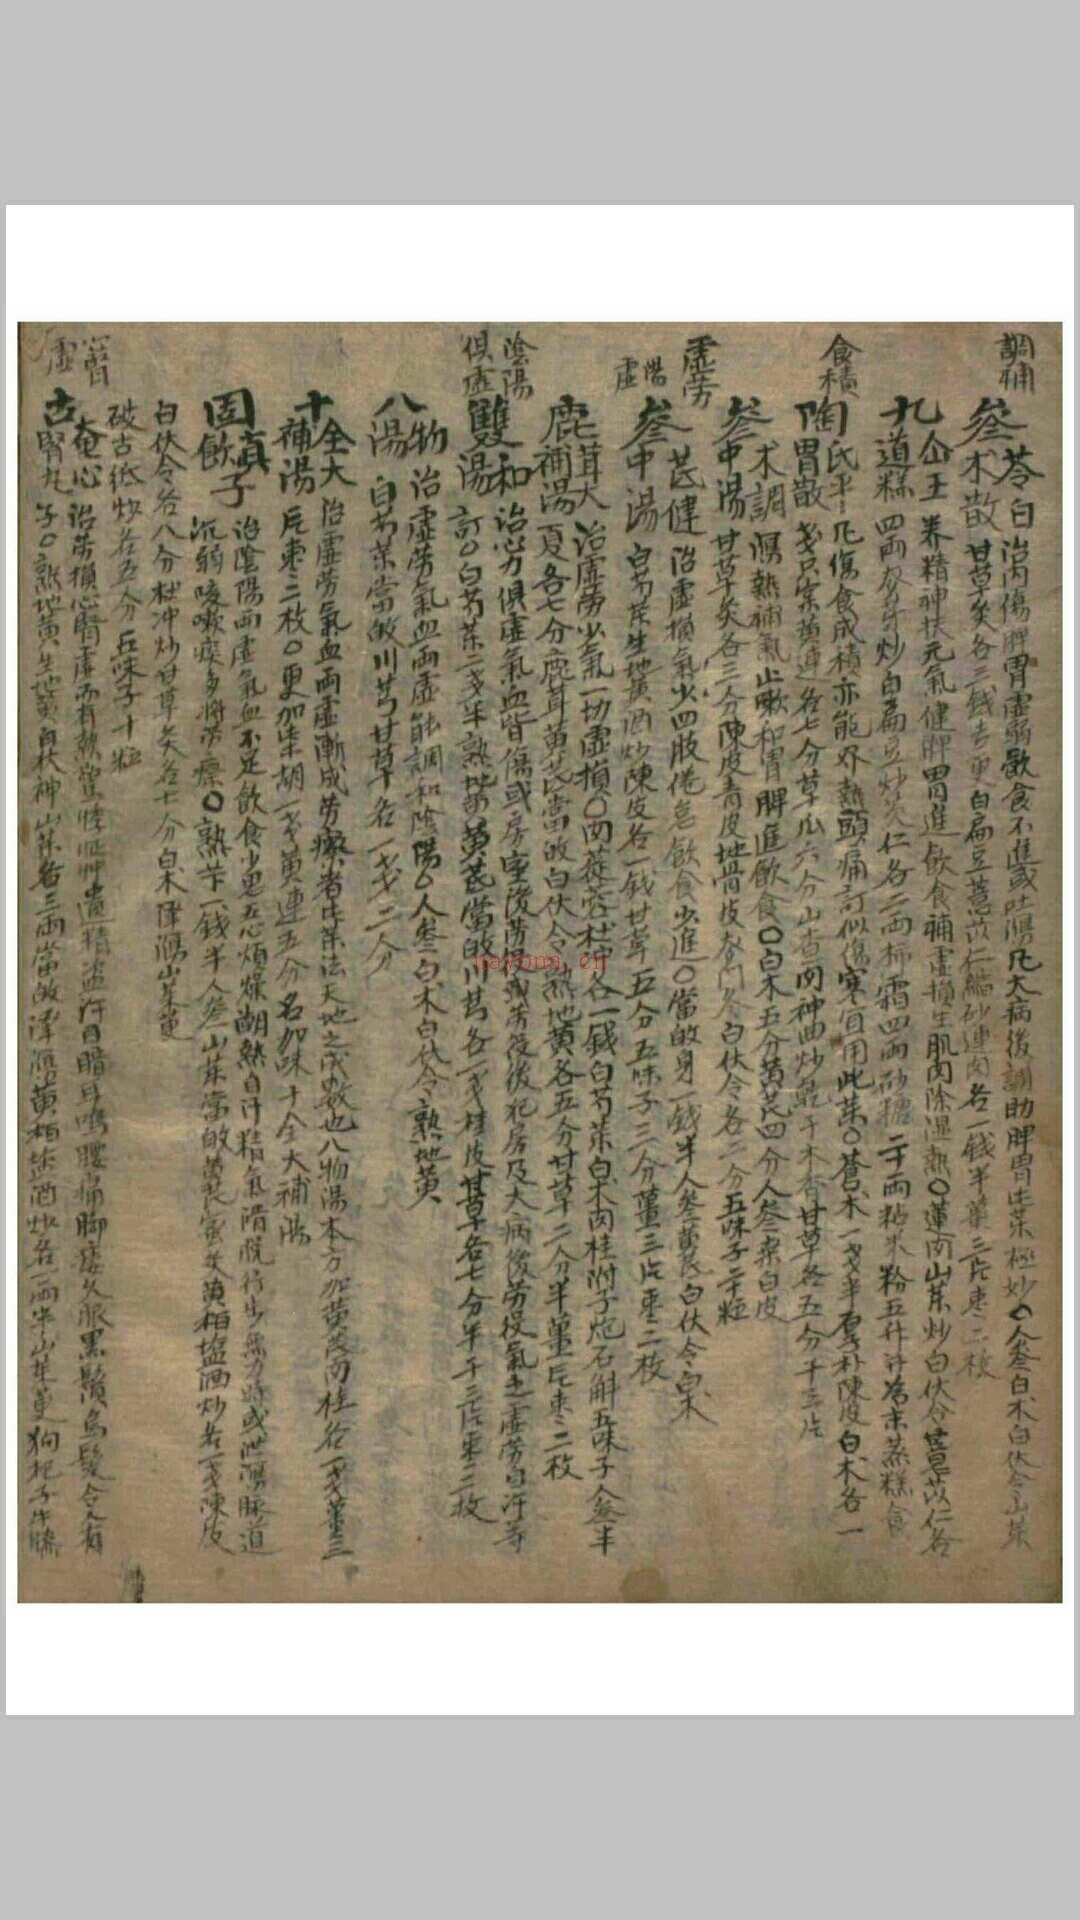 調補
參苓白 治內傷脾胃虛弱飮食不進或吐瀉凡大病後調助脾胃此茱極妙○人參白朮白伏令山茱
朮散 甘草炙各三錢 白扁豆薏苡仁縮砂連肉各一錢半薑三片枣二枚
九仚王 养精神扶元氣健脾胃進飮食補虛損生肌肉除濕熱○蓮肉山茱炒白伏令薏苡仁各
道糕 四兩麥芽炒白扁豆炒芡仁各二兩柿霜四兩砂糖二十兩粘米粉五升 蒸糕食
食積
陶氏平 凡傷食成積亦能外熱頭痛 似傷寒宜用此茱○蒼朮一戋半厚朴陳皮白朮各一
胃散 戋 黃連各七分草瓜六分山查肉神曲炒 干木香甘草各五分干三片
朮調 瀉熱補氣止嗽和胃脾進飮食○白朮五分黃芪四分人參桑白皮
參中湯 甘草炙各三分陳皮青皮地骨皮麥門冬白伏令各二分五味子二十粒
虛劳
芪健 治虛損氣少四肢倦怠飮食少進○當的身一錢半人參黃芪白伏令白朮
陽虛
參中湯 白芍茱生地黃酒炒陳皮各一錢甘草五分五味子三分薑三片枣二枚
茸大 治虛劳少氣一切虛損○肉蓯蓉杜冲各一錢白芍茱白朮肉桂附子炮石斛五味子人參半
鹿補湯 夏各七分鹿茸黃芪當的白伏令熟地黃各五分甘草二分半薑三片枣二枚
陰陽俱虛
和 治心力俱虛氣血皆傷或房室後劳役或劳役後犯房及大病後劳役氣乏虛劳自汗等
雙湯 訂○白芍茱二戋半熟地黃黃芪當的川芎各一戋桂皮甘草各七分半干三片枣二枚
物 治虛劳氣血兩虛能調和陰陽○人參白朮白伏令熟地黃
八湯 白芍茱當的川芎甘草各一戋二分
全大 治虛劳氣血兩虛漸成劳瘵者 茱法天地之成數也八物湯本方加黃芪肉桂各一戋薑三
十補湯 片枣二枚○更加柴胡一戋黃連五分名加味十全大補湯
真子 治陰陽兩虛氣血不足飮食少思五心煩燥潮熱自汗精氣滑脫行步無力時或泄瀉脉道
固飮 沉弱咳嗽痰多將成瘵○熟卞一錢半人參山茱當的黃芪蜜炙黃栢塩酒炒各一戋陳皮
白伏令各八分杜冲炒甘草炙各七分白朮澤瀉山茱萸
破古紙炒各五分五味子十粒
心腎虛
奄心 治劳損心腎虛而有熱 遺精盜汗目暗耳鳴腰痛脚痿久服黑鬚烏髮令人有
古腎丸 子○熟地黃生地黃白伏神山茱各三兩當的澤瀉黃栢塩酒炒各一兩半山茱萸狗杞子牛膝
nayona.cn